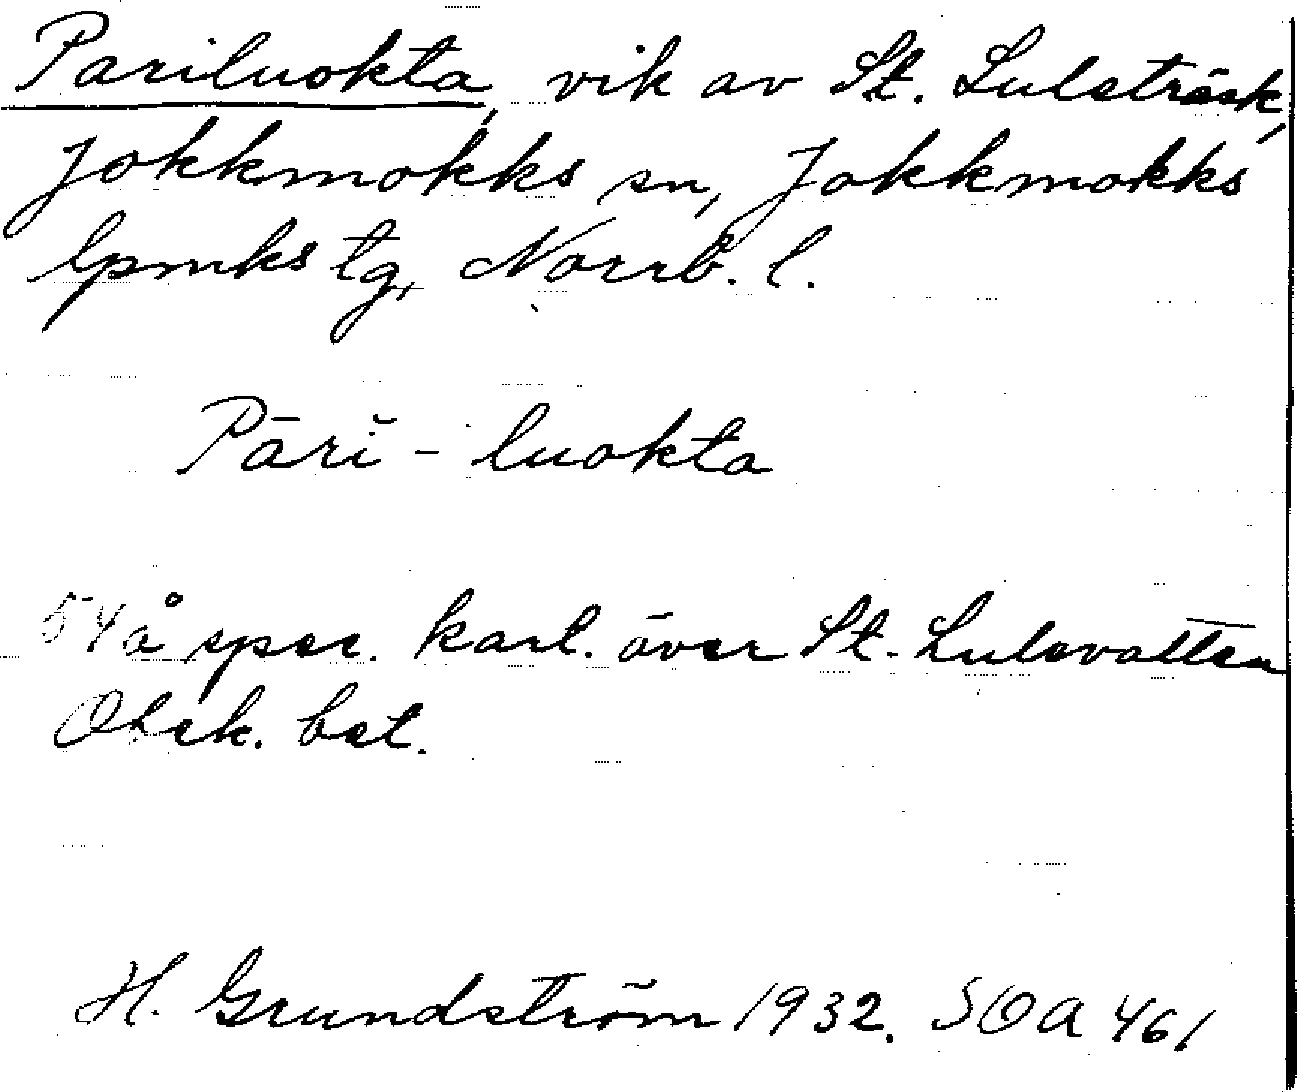 Pariluokta, vik av St. Luleträsk,
Jokkmokks sn, Jokkmokks
lpmks tg, Norrb. l.
Pārĭ - luokta
54 å spec. karl. över St. Lulevatten
Obek. bet.
H. Grundström 1932. SOA 461